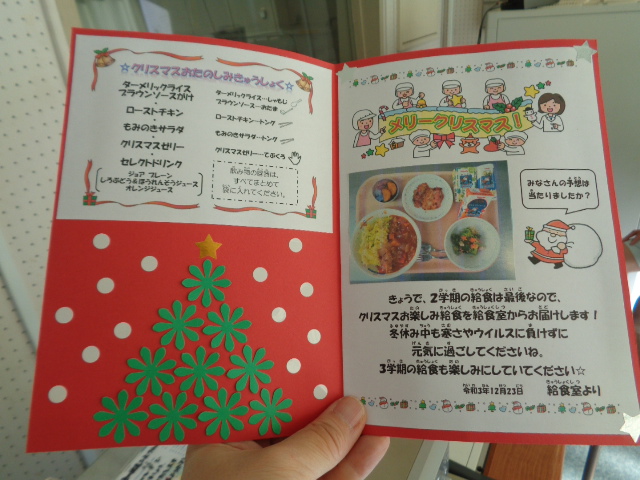 ☆クリスマスおたのしみきゅうしょく☆
ターメリックライス
ブラウンソースがけ
ローストチキン
もみのきサラダ
クリスマスゼリー
セレクトドリンク
ジョア プレーン
しろぶどう&ほうれんそうジュース
オレンジジュース
ターメリックライス…しゃもじ
ブラウンソース…おたま
ローストチキン…トング
もみのきサラダ…トング
クリスマスゼリー…てぶくろ
飲み物の容器は、
すべてまとめて
袋に入れてください。
メリークリスマス!
みなさんの予想は
当たりましたか?
きょうで、2学期の給食は最後なので、
クリスマスお楽しみ給食を給食室からお届けします!
冬休み中も寒さやウイルスに負けずに
元気に過ごしてくださいね。
3学期の給食も楽しみにしていてください☆
令和3年12月23日 給食室より